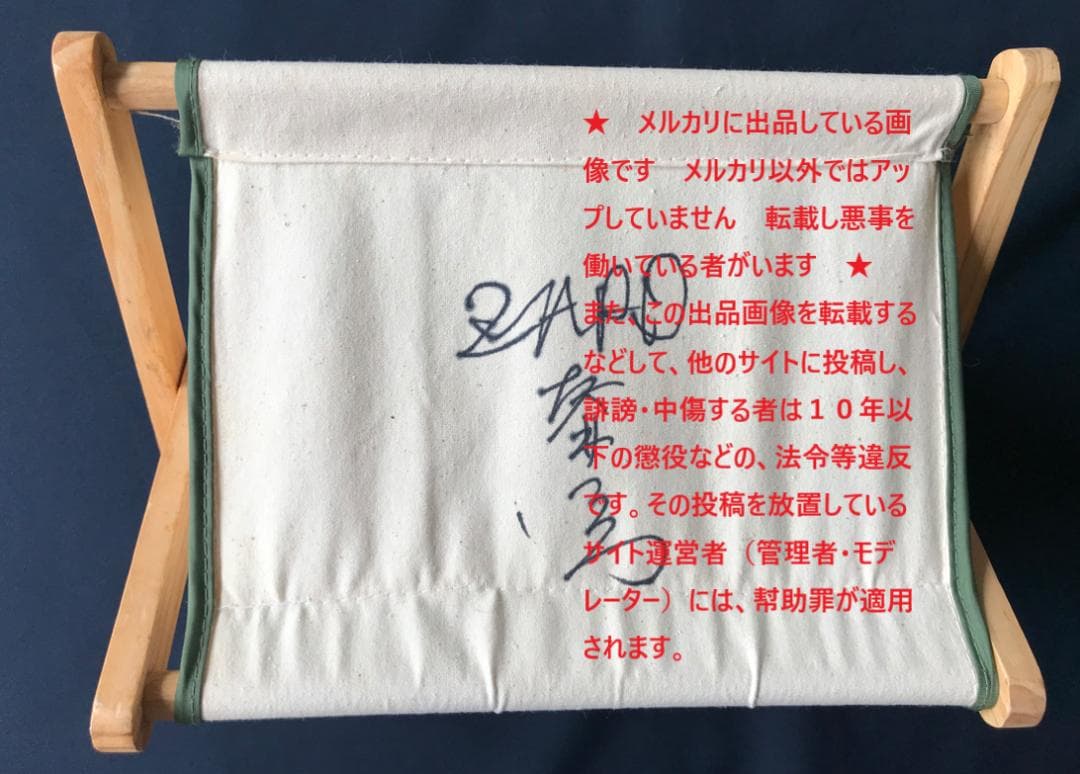 ★　メルカリに出品している画
像です　メルカリ以外ではアッ
プしていません　転載し悪事を
働いている者がいます　★
また、この出品画像を転載する
などして、他のサイトに投稿し、
誹謗・中傷する者は１０年以
下の懲役などの、法令等違反
です。その投稿を放置している
サイト運営者（管理者・モデ
レーター）には、幇助罪が適用
されます。